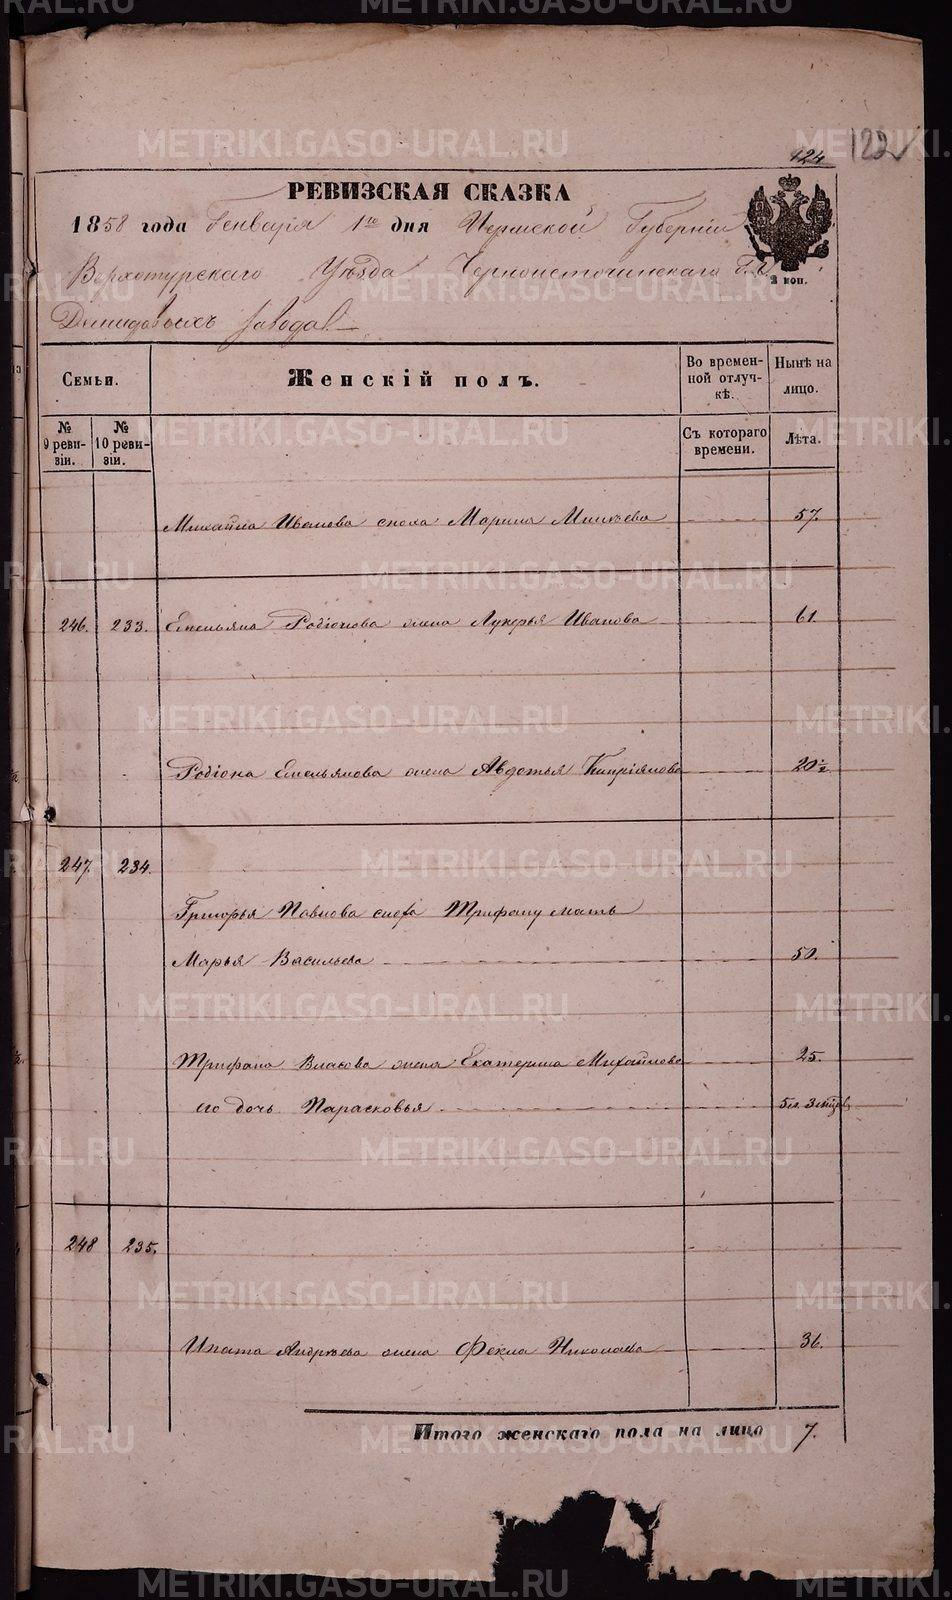 METRIKI.GASO-URAL.RU
124 122
РЕВИЗСКАЯ СКАЗКА
1858 года Генваря 1го дня Пермской Губерніи
Верхотурскаго Уѣзда Черноисточинскаго Г. г.
2 коп.
Демидовыхъ завода
Семьи.
Женскій полъ.
Во времен-
ной отлуч-
кѣ.
Нынѣ на
лицо.
№ 9 реви-
зіи.
№ 10 реви-
зіи.
Съ котораго
времени.
Лѣта.
Михайла Иванова сноха Марина 57.
246. 233. Емельяна Родіонова жена Лукерья Иванова 61.
Родіона Емельянова жена Авдотья Кипріянова 20½
247. 234.
Григорья Павлова Трифану мать
Марья Васильева 50.
Трифана Власова жена Екатерина Михайлова 25.
его дочь Парасковья 5 л. 3 мѣсяц.
248 235.
Ипата Андрѣева жена Фекла Николаева 36.
Итого женскаго пола на лицо 7.